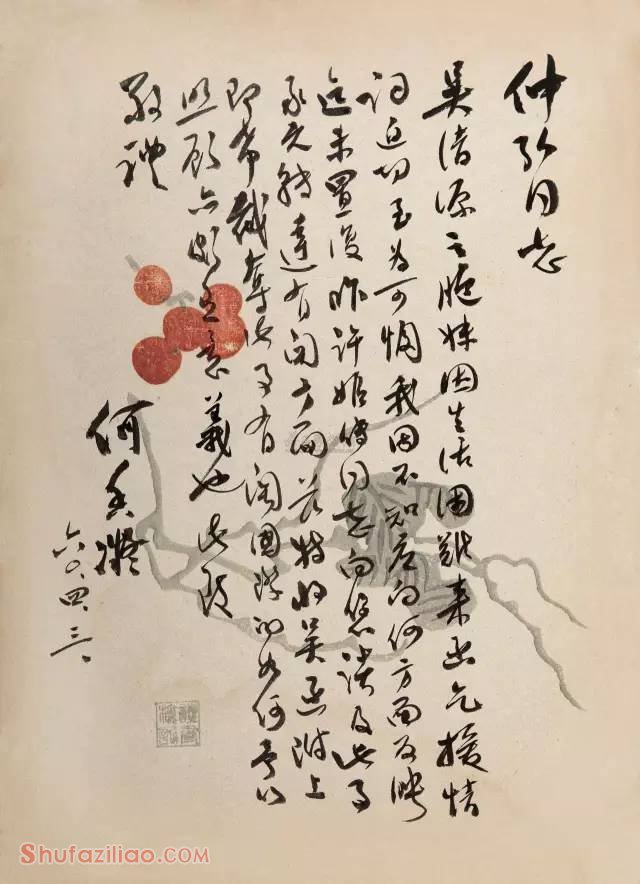 仲弘同志
吴清源之胞妹因生活困难来函乞援情
词迫切至为可悯我因不知应向何方面反映
迄未置复昨许姬传同志向您谈及此事
承允转达有关方面兹特将吴函附上
即希裁夺此事有关国际的如何予以
照顾亦颇主意义也此致
敬礼
何香凝
六〇.四.三.
Shufaziliao.COM